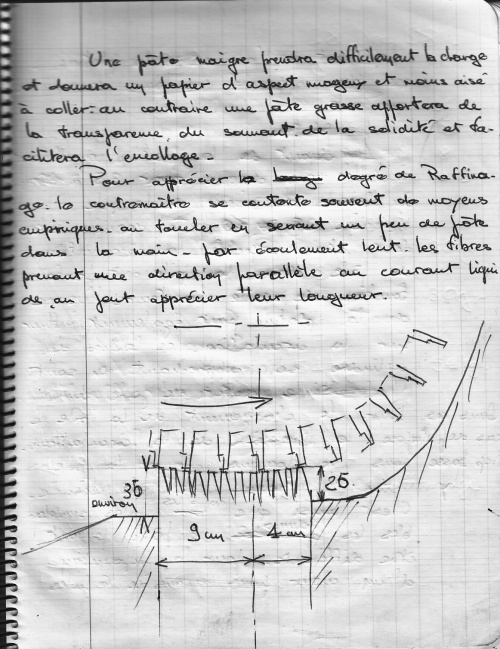 Une pâte maigre prendra difficilement la charge
et donnera un papier d'aspect nuageux et moins aisé
à coller. au contraire une pâte grasse apportera de
la transparence, du sonnant. de la solidité et fa-
cilitera l'encollage.
Pour apprécier le degré de Raffina-
ge. le contremaître se contente souvent de moyens
empiriques. au toucher en serrant un peu de pâte
dans la main - par écoulement lent. les fibres
prenant une direction parallèle au courant liqui
de. on peut apprécier leur longueur.
36
environ
26
9 cm
4 cm